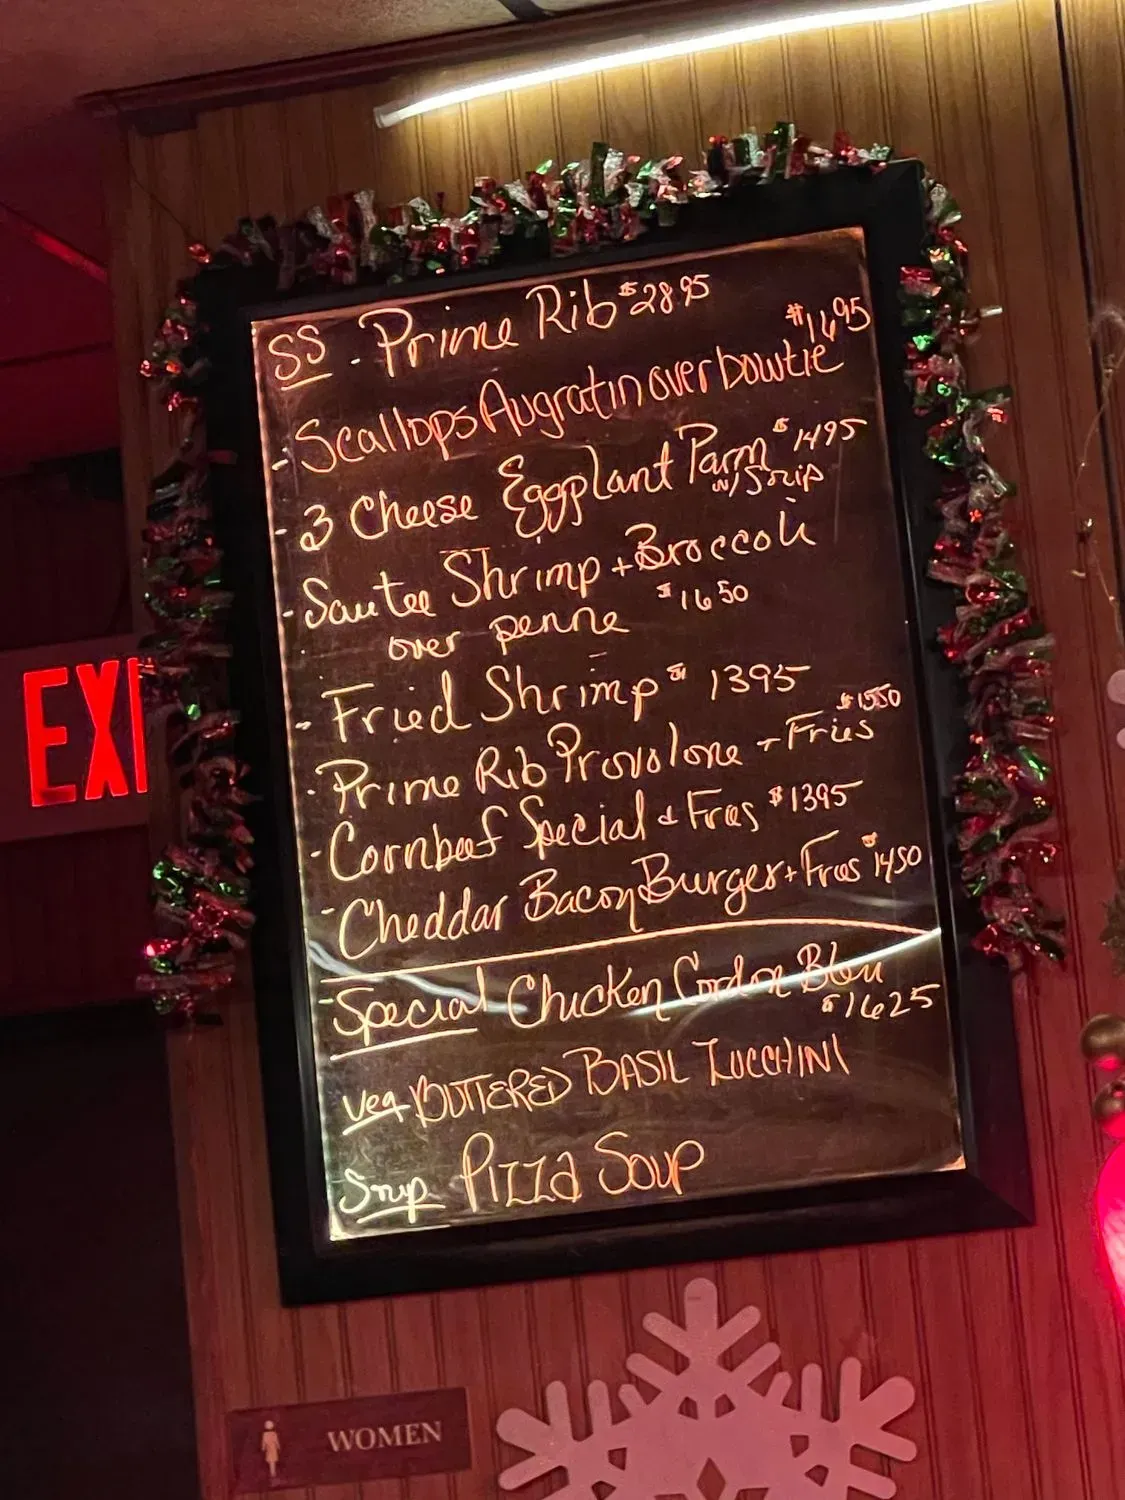 SS - Prime Rib $28 95
$16 95
- Scallops Augratin over bowtie
- 3 Cheese Eggplant Parm $14 95
- Sautee Shrimp + Broccoli
over penne $16 50
- Fried Shrimp $13 95
- Prime Rib Provolone + Fries $15 50
- Cornbeef Special + Fries $13 95
- Cheddar Bacon Burger + Fries $14 50
- Special Chicken Cordon Bleu
$16 25
Veg BUTTERED BASIL ZUCCHINI
Soup PIZZA SOUP
EXI
WOMEN